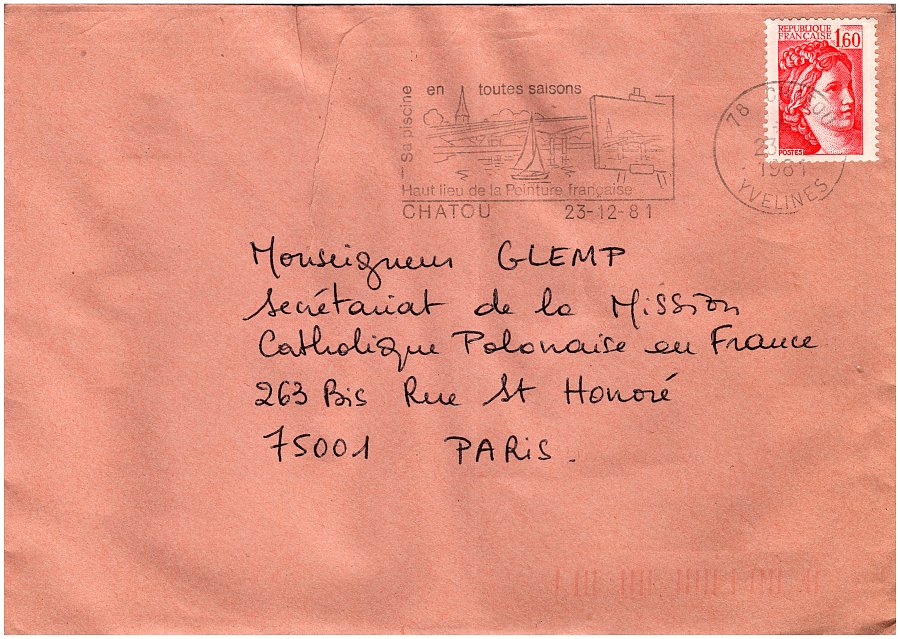 REPUBLIQUE
FRANÇAISE 1,60
POSTES
Sa piscine en toutes saisons
Haut lieu de la Peinture française
CHATOU 23-12-81
78 CHATOU
1981
YVELINES
Monseigneur GLEMP
Secrétariat de la Mission
Catholique Polonaise en France
263 Bis Rue St Honoré
75001 PARIS.